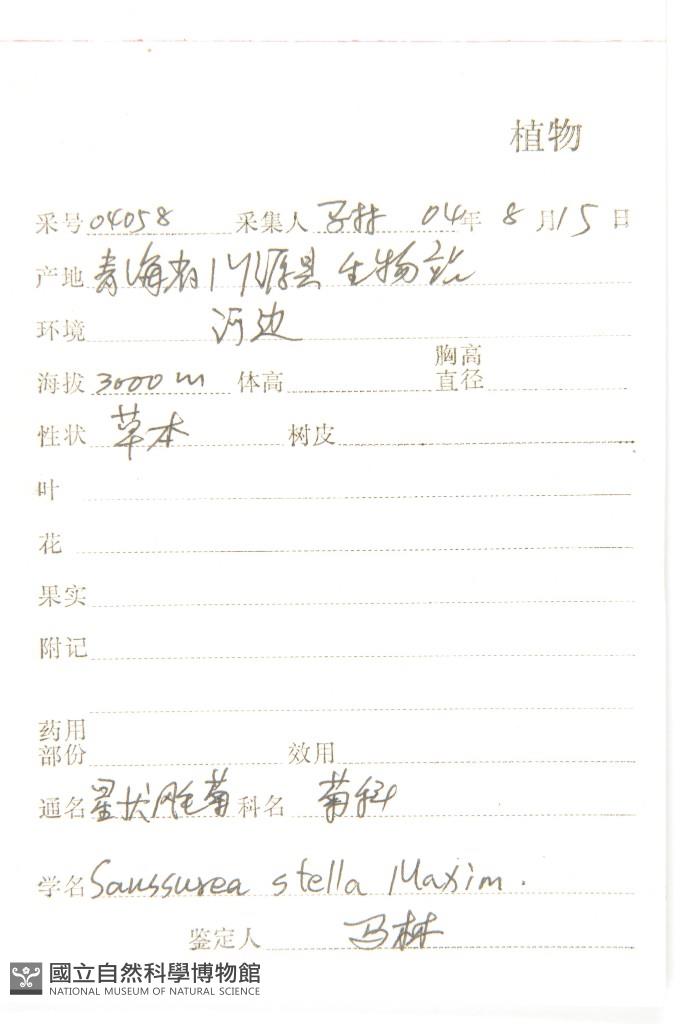 植物
采号 04058 采集人 马林 04年 8月15日
产地 青海省门源县生物站
环境 河边
海拔 3000m 体高 胸高直径
性状 草本 树皮
叶
花
果实
附记
药用部份 效用
通名 星状风毛菊 科名 菊科
学名 Saussurea stella Maxim.
鉴定人 马林
國立自然科學博物館
NATIONAL MUSEUM OF NATURAL SCIENCE